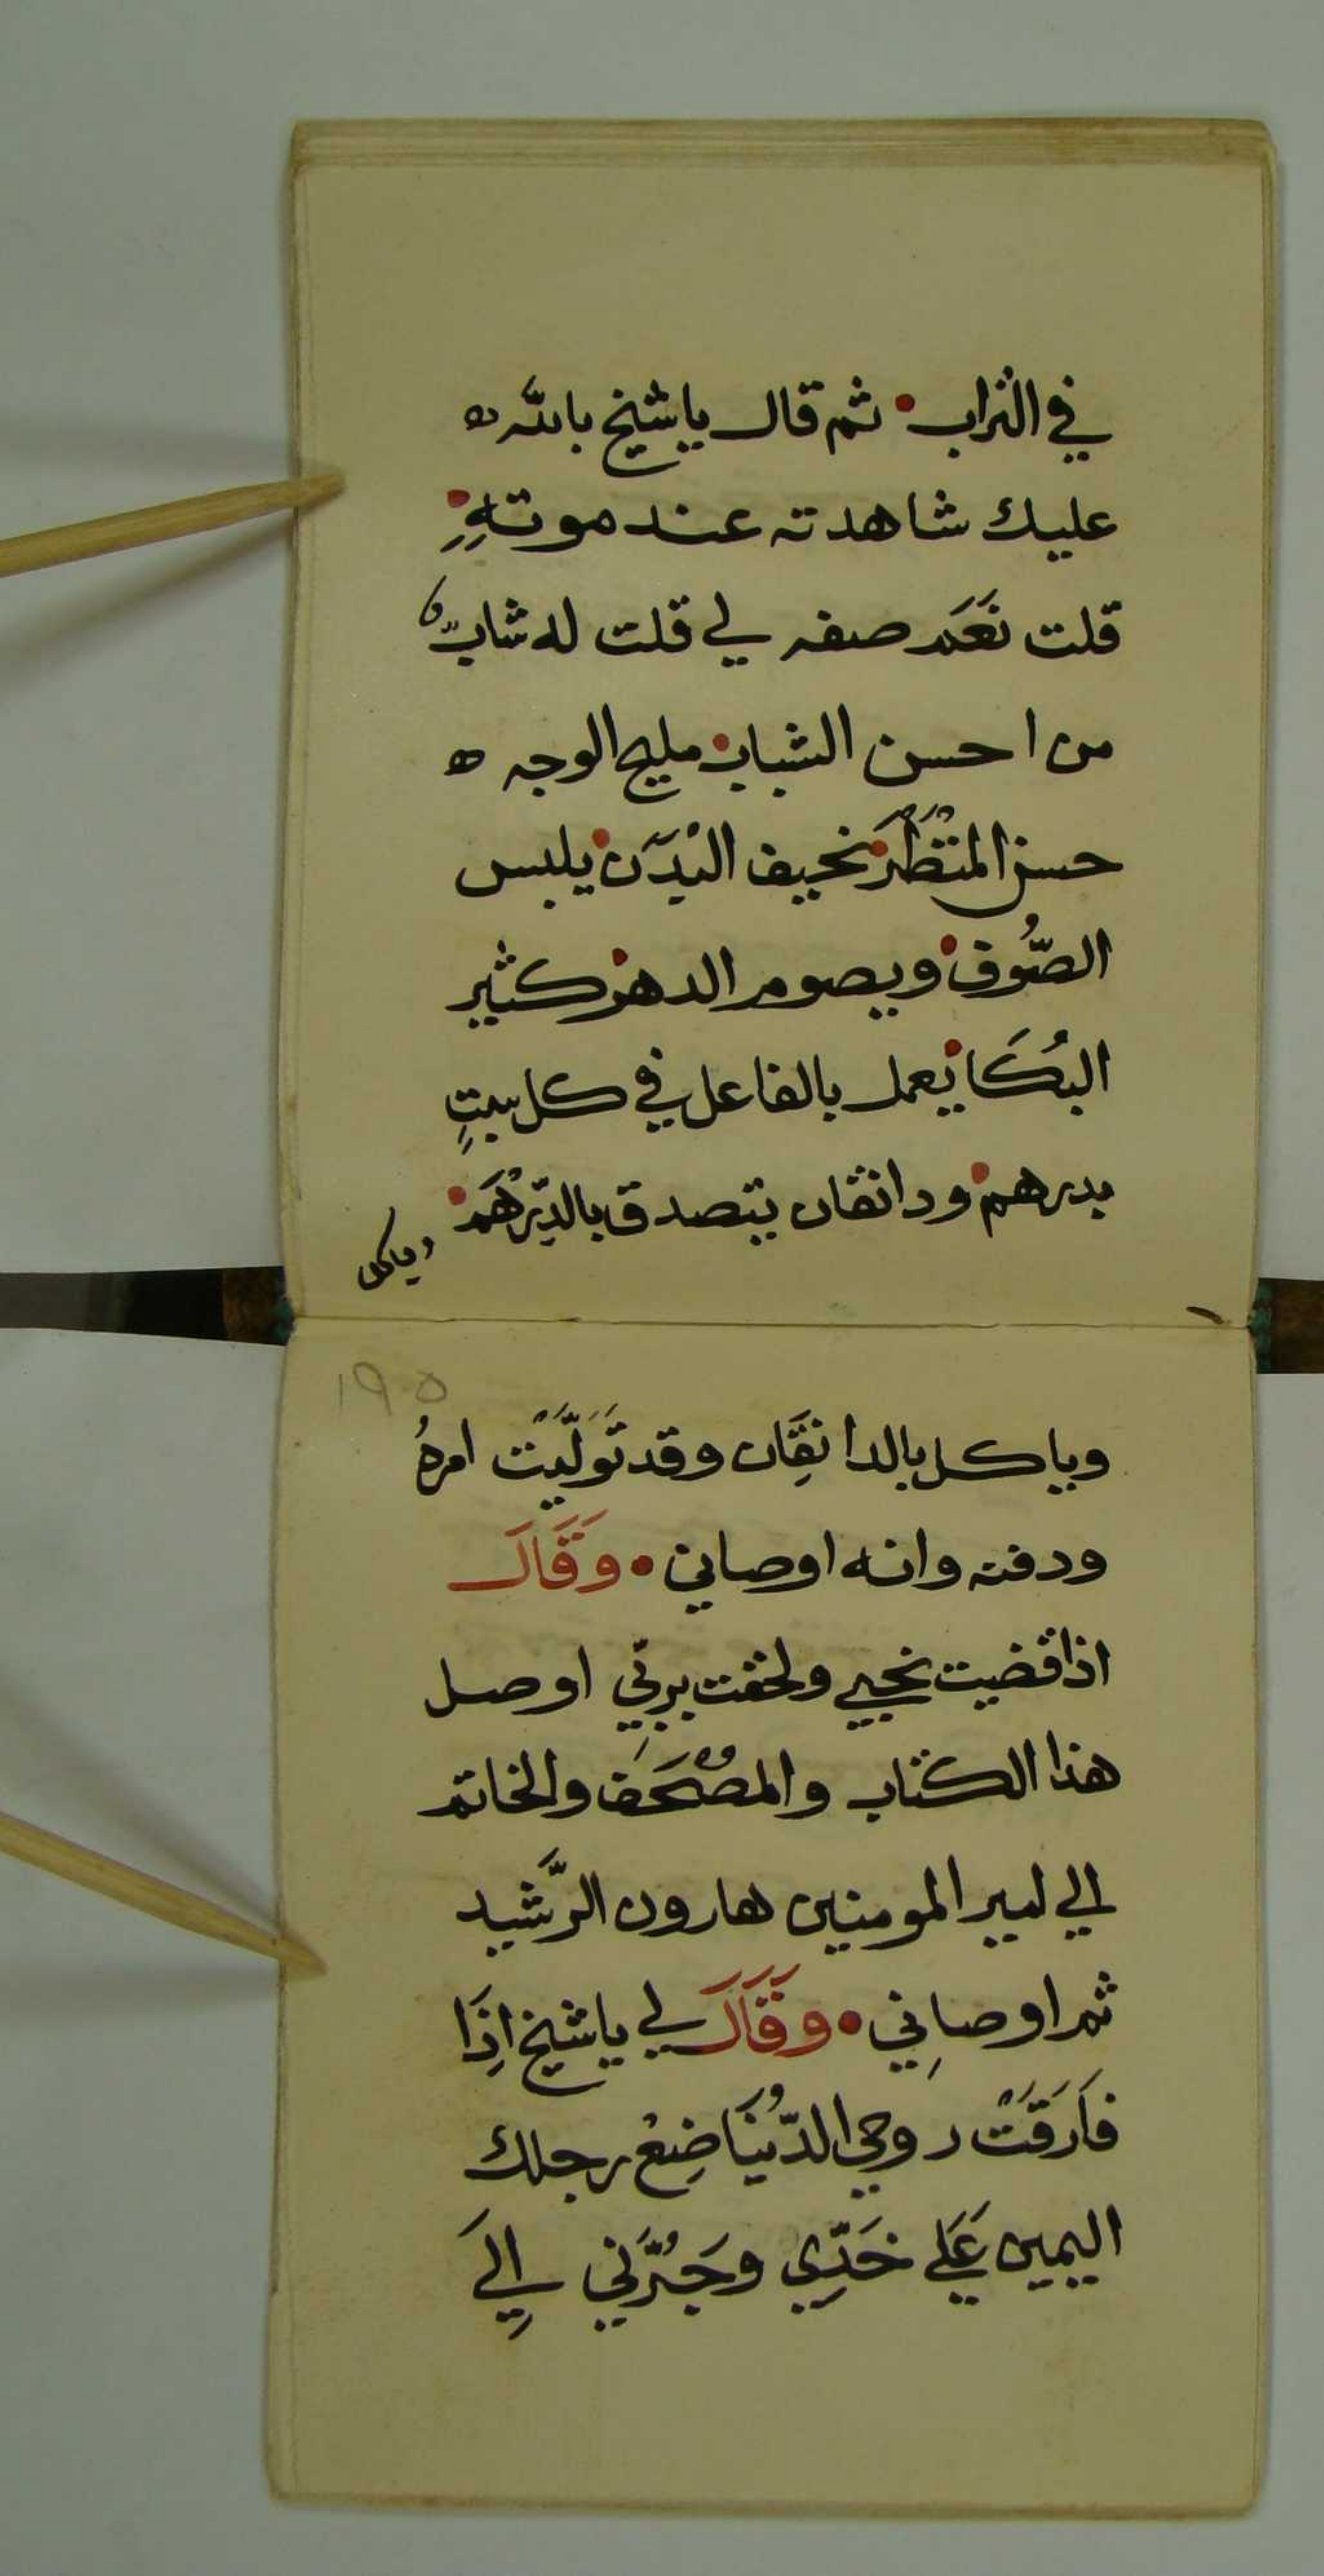 في التراب • ثم قال ياشيخ بالله ه
عليك شاهدته عند موتهِ •
قلت نَعَم صفه لي قلت له شابّ
من احسن الشباب • مليح الوجه ه
حسن المنْظَر • نحيف البَدَن • يلبس
الصُّوف • ويصوم الدهر • كثير
البُكَا • يعمل بالفاعل في كل سبتٍ
بدرهم • ودانقان يتصدق بالدِّرْهَم •
وياكل
١٩٥
وياكل بالدانقَِان وقد تَوَلَّيْت امرهُ
ودفنه وانه اوصاني • وَقَالَ
اذا قضيت نحبي ولحقت بربِّي اوصل
هذا الكتاب والمصْحَف والخاتم
الي امير المومنين هارون الرَّشيد
ثم اوصاني • وَقَالَ لي ياشيخ اذَِا
فَارَقَتْ روحي الدُّنْيَا ضِعْ رجلك
اليمين عَلَي خَدِّي وَجُرَّني اِلَي